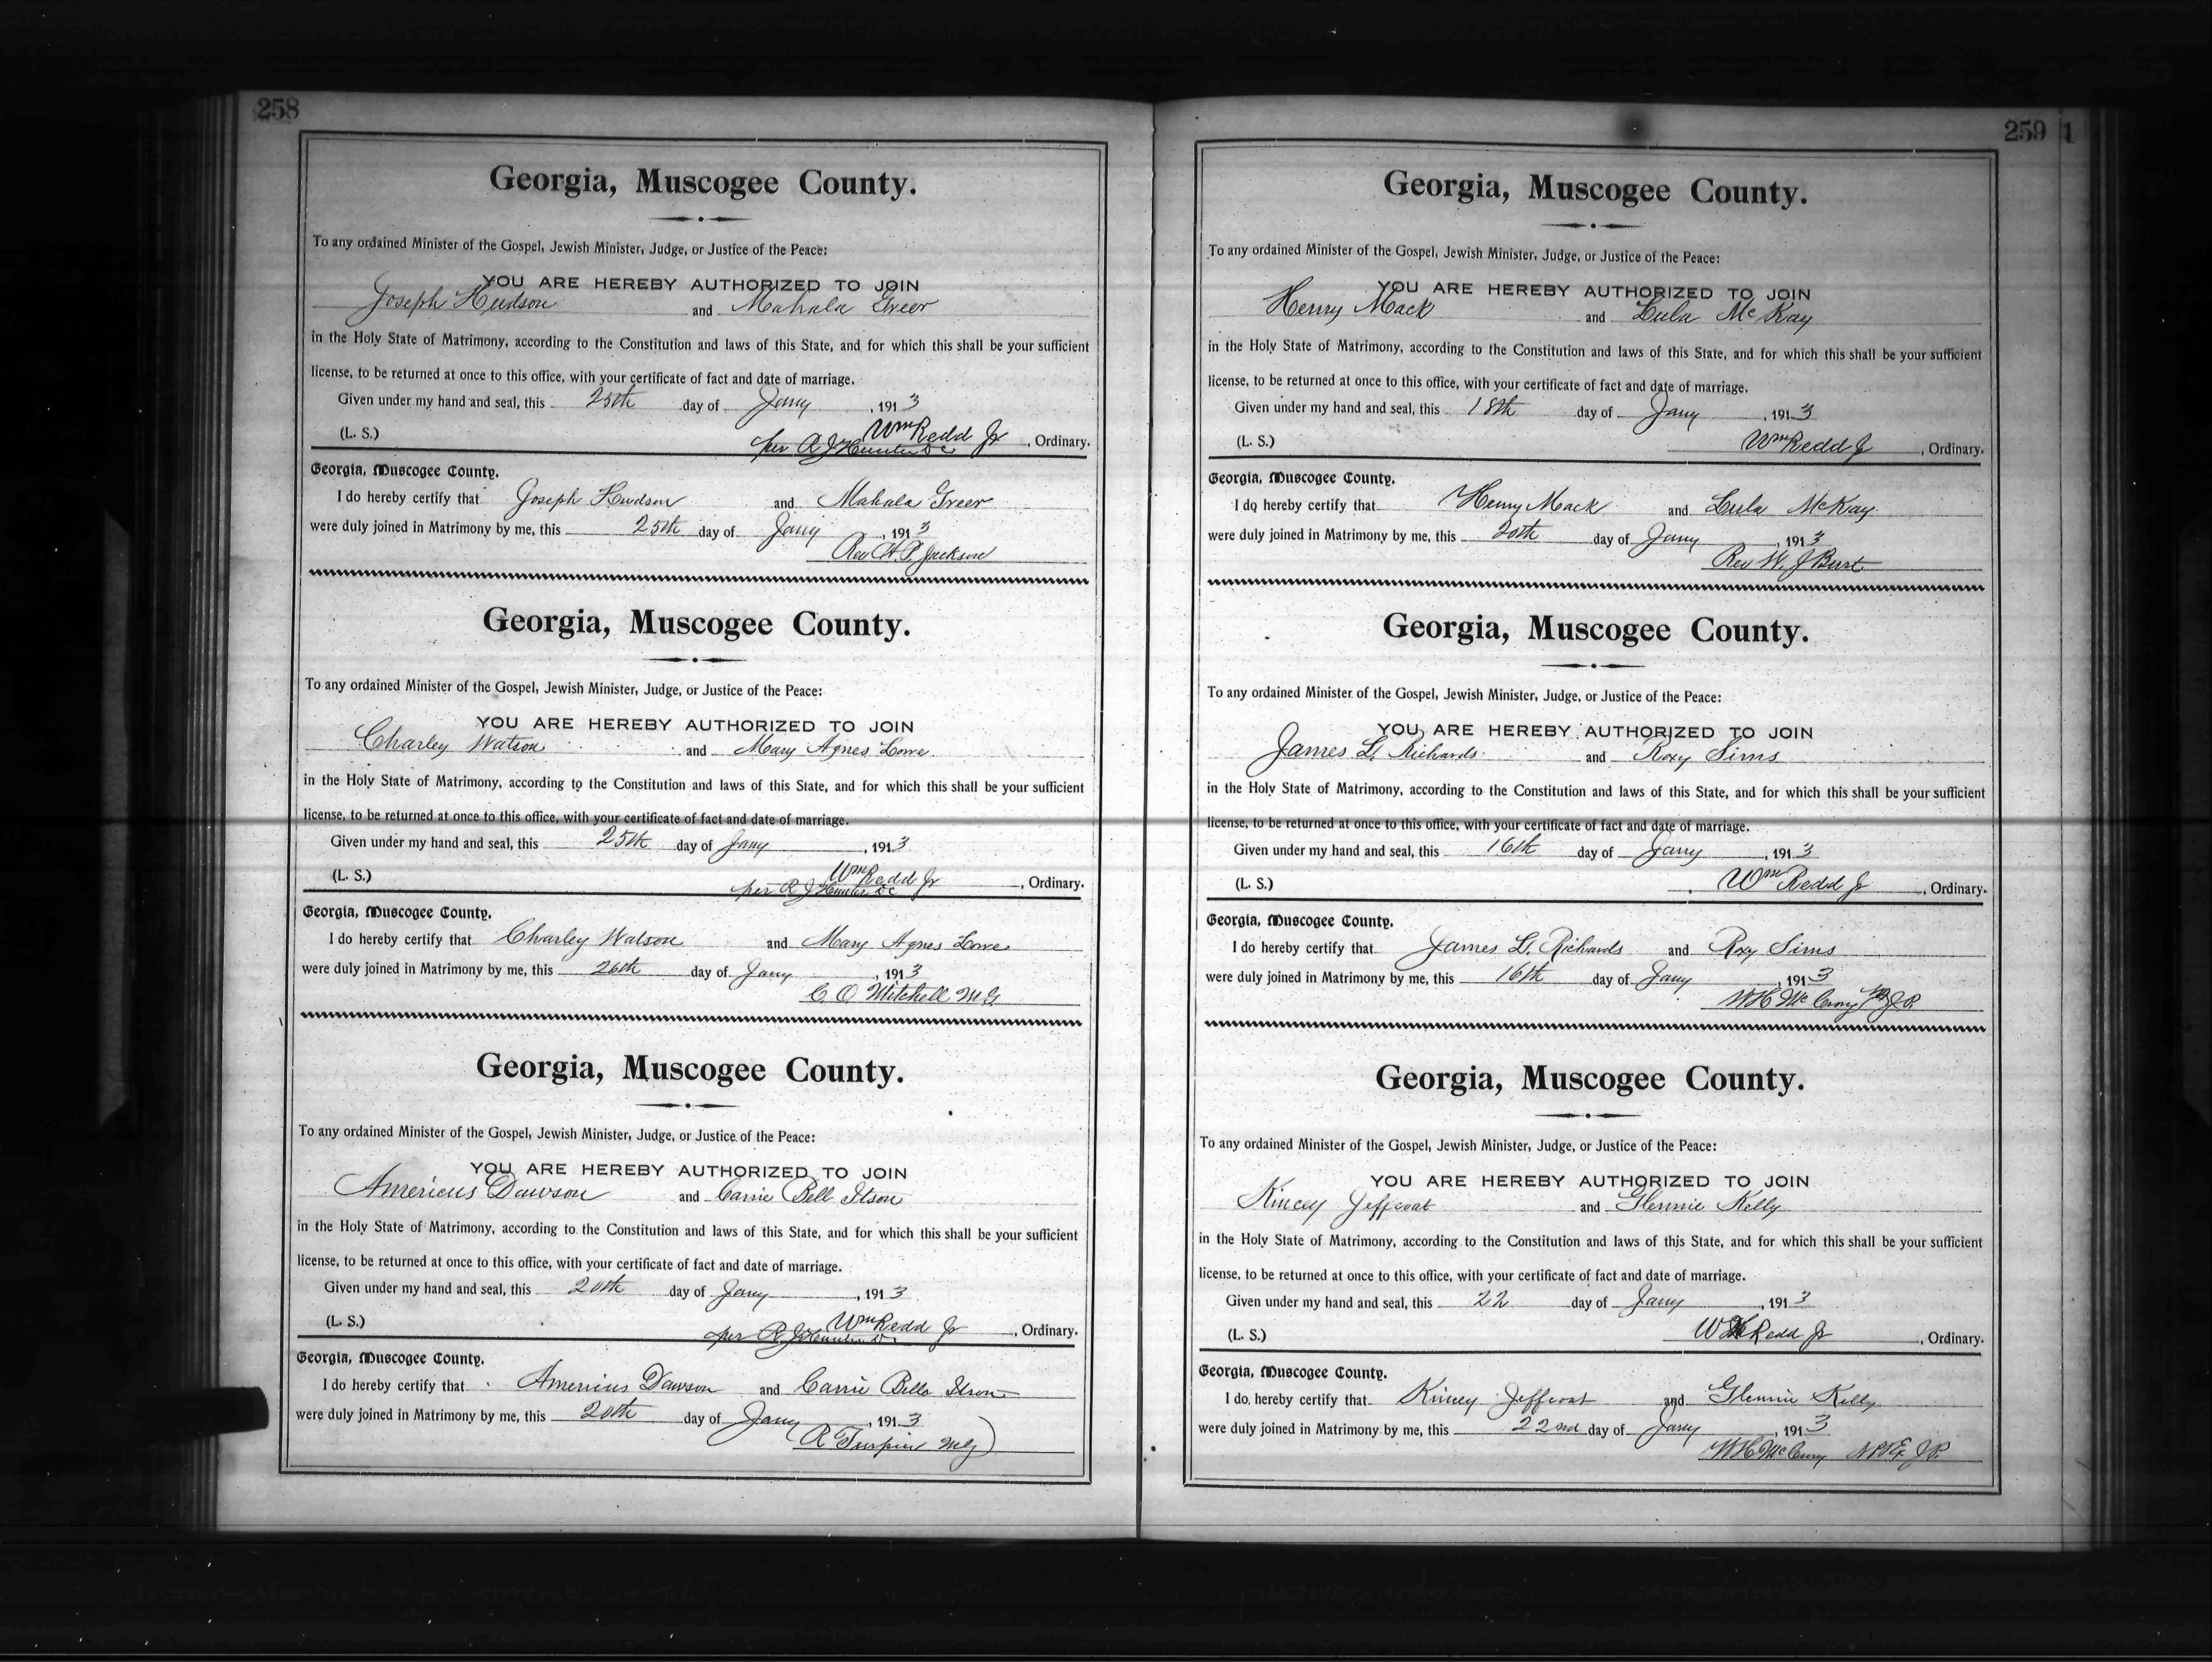 258
Georgia, Muscogee County.
To any ordained Minister of the Gospel, Jewish Minister, Judge, or Justice of the Peace:
YOU ARE HEREBY AUTHORIZED TO JOIN
Joseph Hudson and Mahala Greer
in the Holy State of Matrimony, according to the Constitution and laws of this State, and for which this shall be your sufficient
license, to be returned at once to this office, with your certificate of fact and date of marriage.
Given under my hand and seal, this 25th day of Jany, 1913
Wm Redd Jr
(L. S.) per R J Hunter D C, Ordinary.
Georgia, Muscogee County.
I do hereby certify that Joseph Hudson and Mahala Greer
were duly joined in Matrimony by me, this 25th day of Jany, 1913
Rev H. P. Jackson
Georgia, Muscogee County.
To any ordained Minister of the Gospel, Jewish Minister, Judge, or Justice of the Peace:
YOU ARE HEREBY AUTHORIZED TO JOIN
Charley Watson and Mary Agnes Lowe
in the Holy State of Matrimony, according to the Constitution and laws of this State, and for which this shall be your sufficient
license, to be returned at once to this office, with your certificate of fact and date of marriage.
Given under my hand and seal, this 25th day of Jany, 1913
Wm Redd Jr
(L. S.) per R J Hunter D C, Ordinary.
Georgia, Muscogee County.
I do hereby certify that Charley Watson and Mary Agnes Lowe
were duly joined in Matrimony by me, this 26th day of Jany, 1913
C O Mitchell M G
Georgia, Muscogee County.
To any ordained Minister of the Gospel, Jewish Minister, Judge, or Justice of the Peace:
YOU ARE HEREBY AUTHORIZED TO JOIN
Americus Dawson and Carrie Bell Itson
in the Holy State of Matrimony, according to the Constitution and laws of this State, and for which this shall be your sufficient
license, to be returned at once to this office, with your certificate of fact and date of marriage.
Given under my hand and seal, this 20th day of Jany, 1913
Wm Redd Jr
(L. S.) per R J Hunter D C, Ordinary.
Georgia, Muscogee County.
I do hereby certify that Americus Dawson and Carrie Bell Itson
were duly joined in Matrimony by me, this 20th day of Jany, 1913
(R Turpin MG)
259 1
Georgia, Muscogee County.
To any ordained Minister of the Gospel, Jewish Minister, Judge, or Justice of the Peace:
YOU ARE HEREBY AUTHORIZED TO JOIN
Henry Mack and Lula McKay
in the Holy State of Matrimony, according to the Constitution and laws of this State, and for which this shall be your sufficient
license, to be returned at once to this office, with your certificate of fact and date of marriage.
Given under my hand and seal, this 18th day of Jany, 1913
(L. S.) Wm Redd J, Ordinary.
Georgia, Muscogee County.
I do hereby certify that Henry Mack and Lula McKay
were duly joined in Matrimony by me, this 20th day of Jany, 1913
Rev W. J Burt
Georgia, Muscogee County.
To any ordained Minister of the Gospel, Jewish Minister, Judge, or Justice of the Peace:
YOU ARE HEREBY AUTHORIZED TO JOIN
James L. Richards and Roxy Sims
in the Holy State of Matrimony, according to the Constitution and laws of this State, and for which this shall be your sufficient
license, to be returned at once to this office, with your certificate of fact and date of marriage.
Given under my hand and seal, this 16th day of Jany, 1913
(L. S.) Wm Redd Jr, Ordinary.
Georgia, Muscogee County.
I do hereby certify that James L. Richards and Roxy Sims
were duly joined in Matrimony by me, this 16th day of Jany, 1913
W H McCrory J.P.
Georgia, Muscogee County.
To any ordained Minister of the Gospel, Jewish Minister, Judge, or Justice of the Peace:
YOU ARE HEREBY AUTHORIZED TO JOIN
Kincey Jeffcoat and Glennie Kelly
in the Holy State of Matrimony, according to the Constitution and laws of this State, and for which this shall be your sufficient
license, to be returned at once to this office, with your certificate of fact and date of marriage.
Given under my hand and seal, this 22 day of Jany, 1913
(L. S.) Wm Redd Jr, Ordinary.
Georgia, Muscogee County.
I do hereby certify that Kincey Jeffcoat and Glennie Kelly
were duly joined in Matrimony by me, this 22nd day of Jany, 1913
W H McCrory J.P.